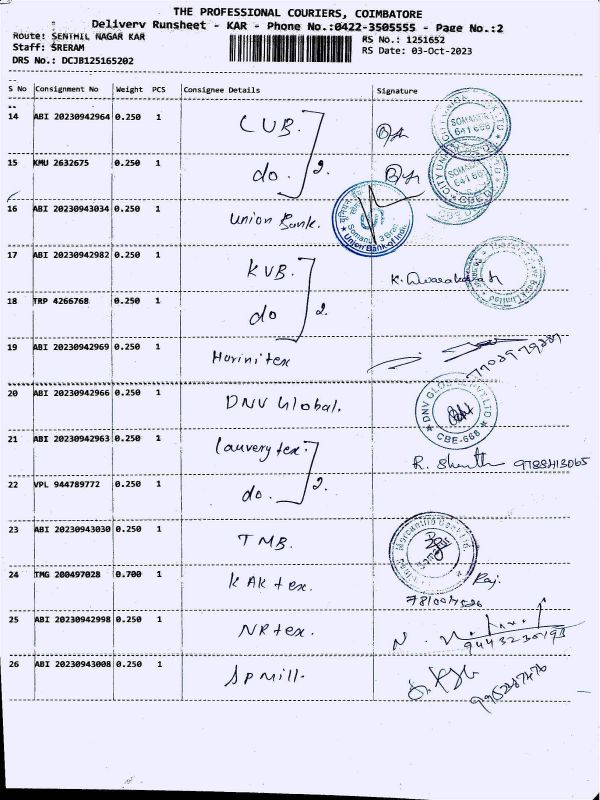 THE PROFESSIONAL COURIERS, COIMBATORE
Delivery Runsheet - KAR - Phone No.:0422-3505555 - Page No.:2
Route: SENTHIL NAGAR KAR
Staff: SRERAM
DRS No.: DCJB125165202
RS No.: 1251652
RS Date: 03-Oct-2023
S No Consignment No Weight PCS Consignee Details Signature
14 ABI 20230942964 0.250 1 CUB.
15 KMU 2632675 0.250 1 do. 2.
16 ABI 20230943034 0.250 1 Union Bank.
Union Bank of India
17 ABI 20230942982 0.250 1 KVB.
18 TRP 4266768 0.250 1 do 2.
19 ABI 20230942969 0.250 1 Harinitex
20 ABI 20230942966 0.250 1 DNV Global.
CBE-668
21 ABI 20230942963 0.250 1 Cauvery tex. R. Shanth 9788413065
22 VPL 944789772 0.250 1 do. 2.
23 ABI 20230943030 0.250 1 TMB.
24 TMG 200497028 0.700 1 KAK tex. Raj.
25 ABI 20230942998 0.250 1 NR tex. 9443230198
26 ABI 20230943008 0.250 1 SP Mill.